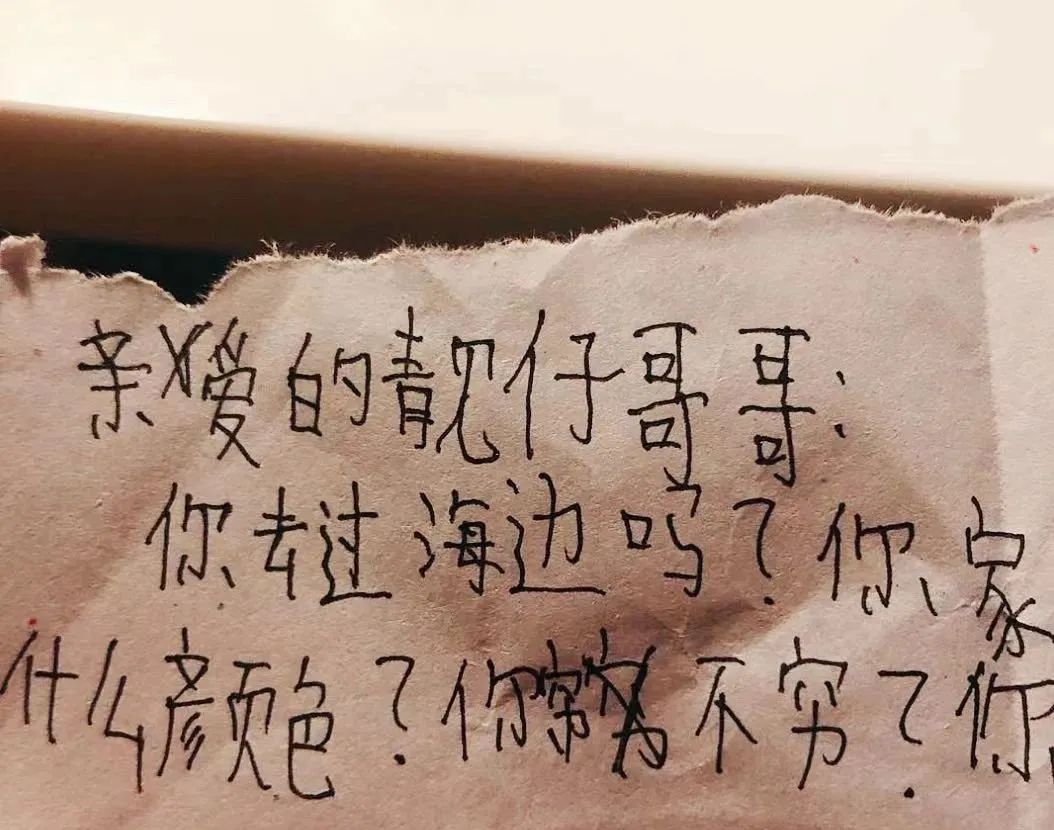 亲爱的靓仔哥哥:
你去过海边吗?你家
什么颜色?你穷不穷?你